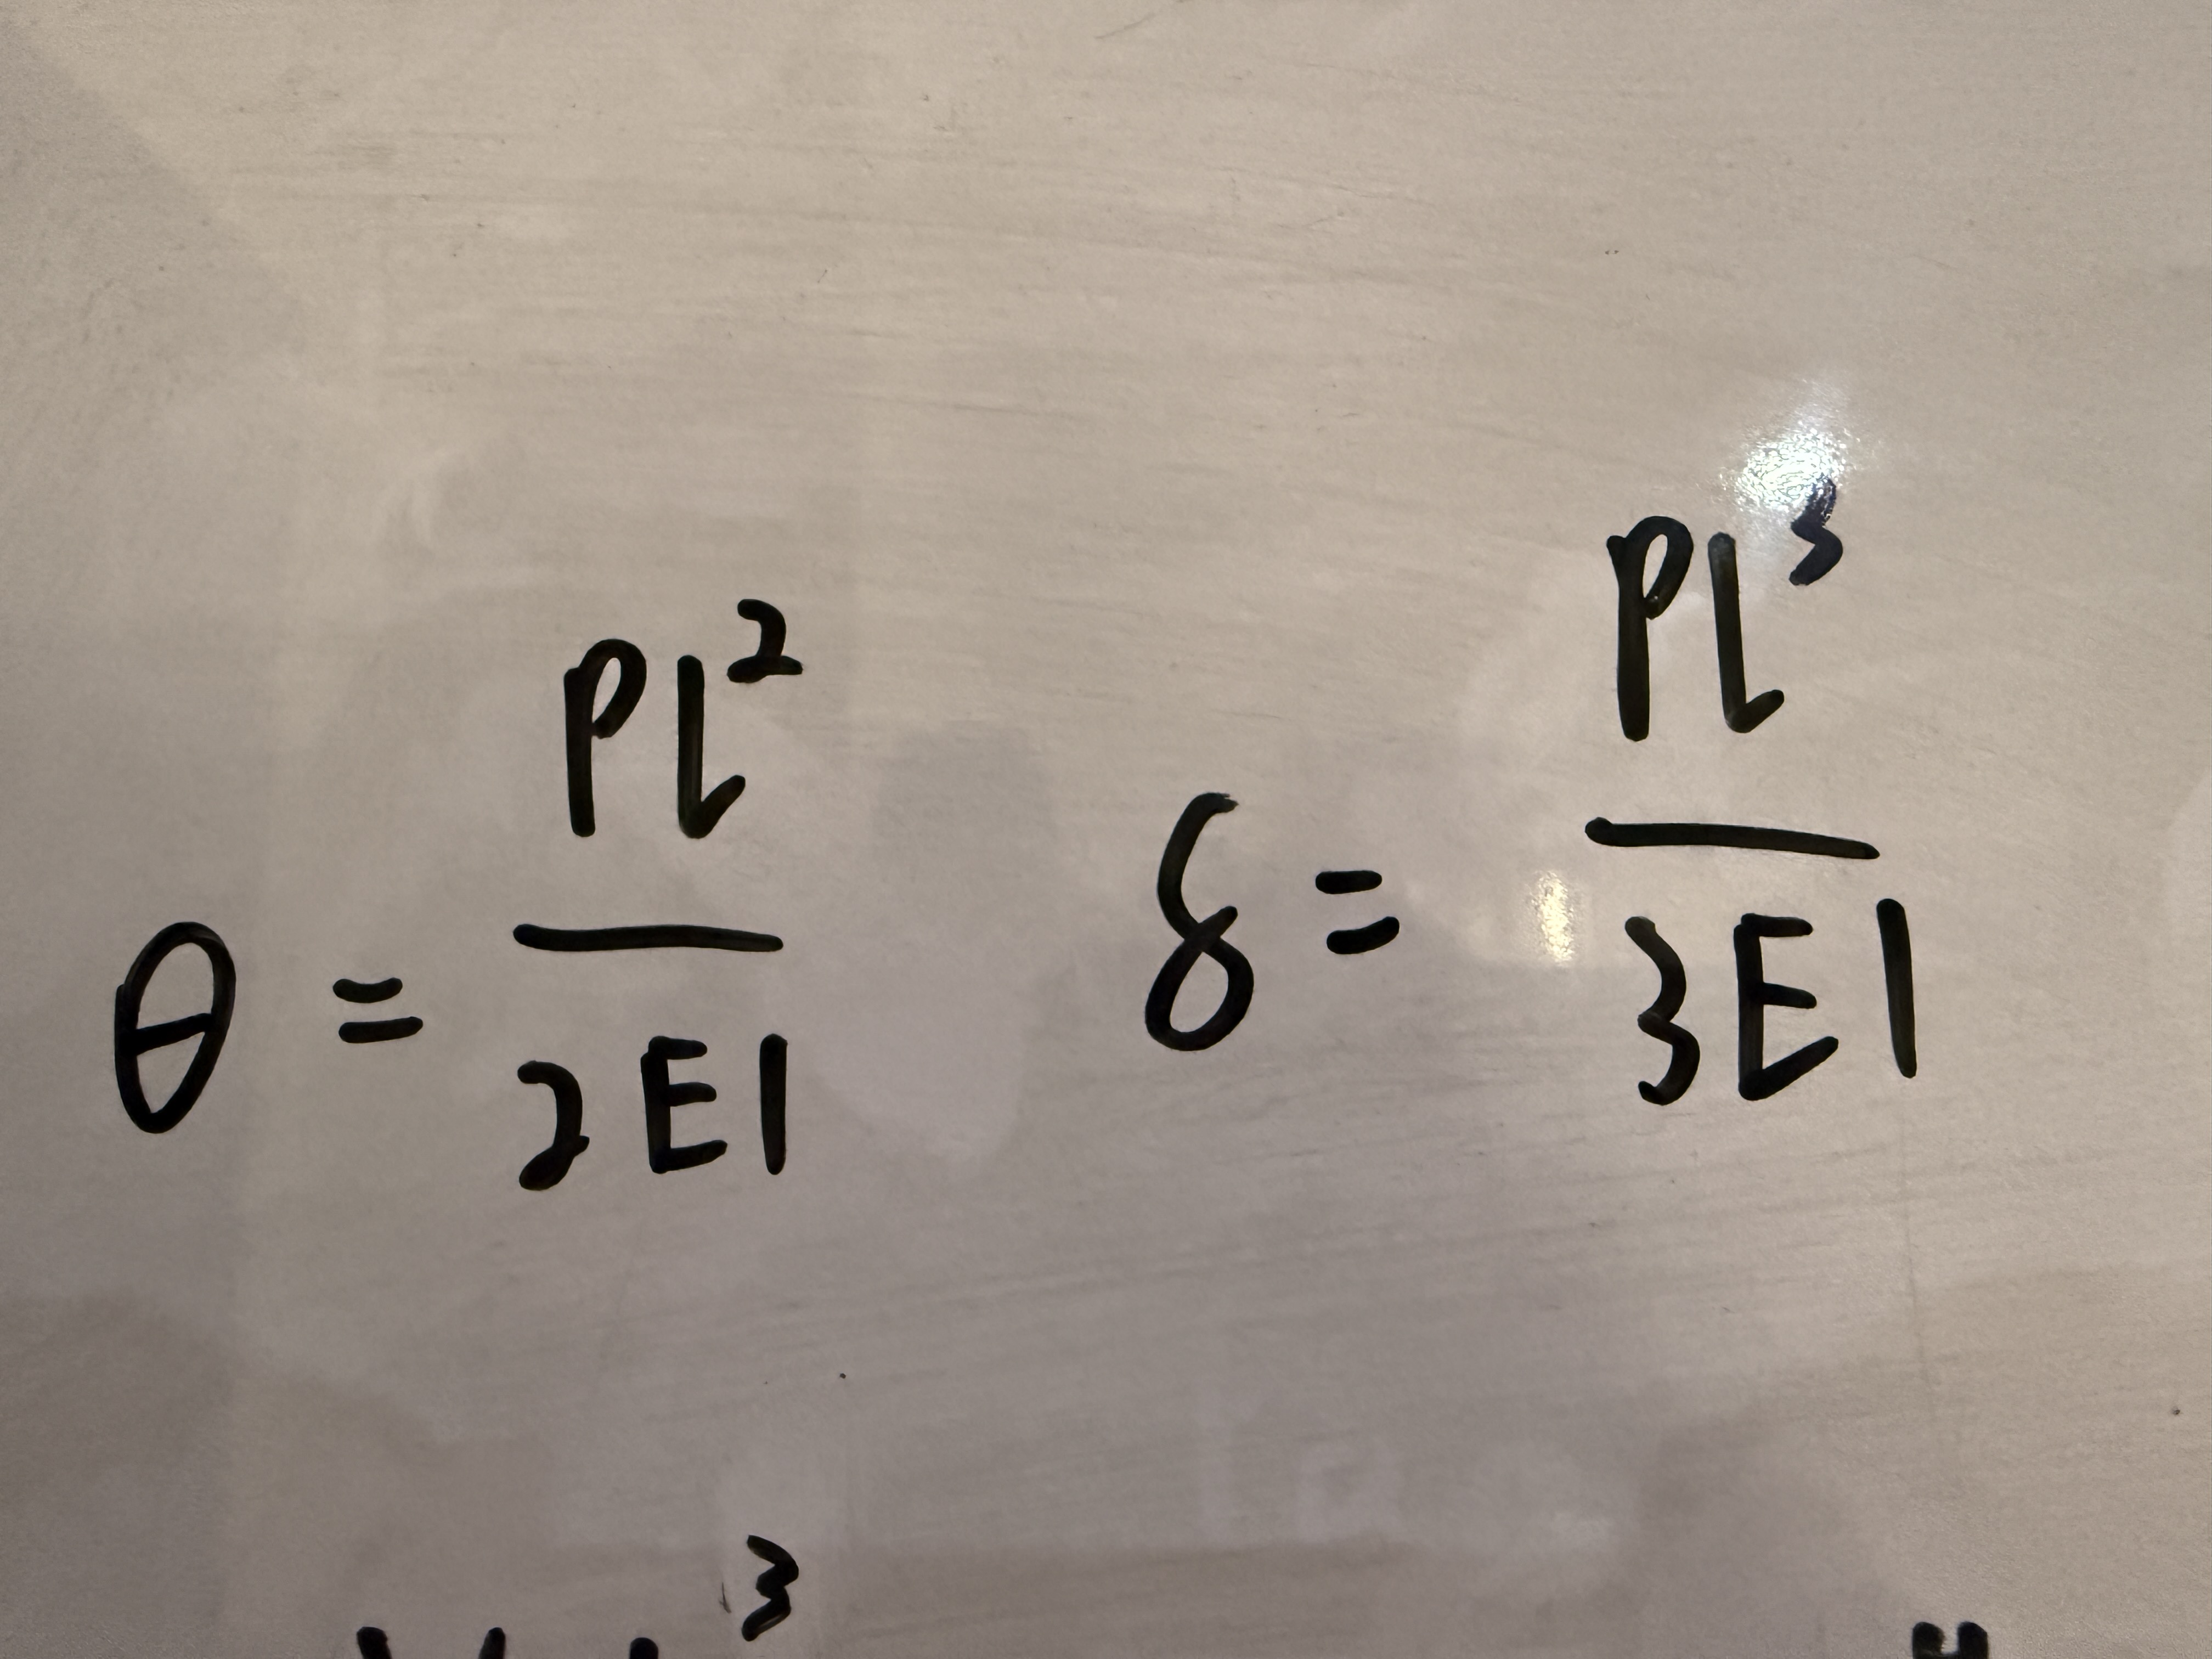 θ = Pl²/2EI   δ = Pl³/3EI
3